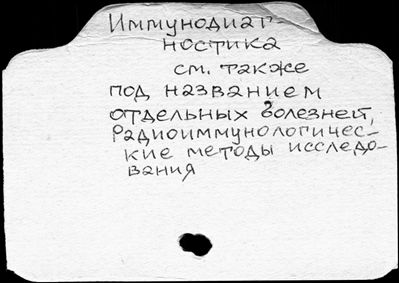 Иммунодиаг-
ностика
см. также
под названием
отдельных болезней,
Радиоиммунологичес-
кие методы исследо-
вания